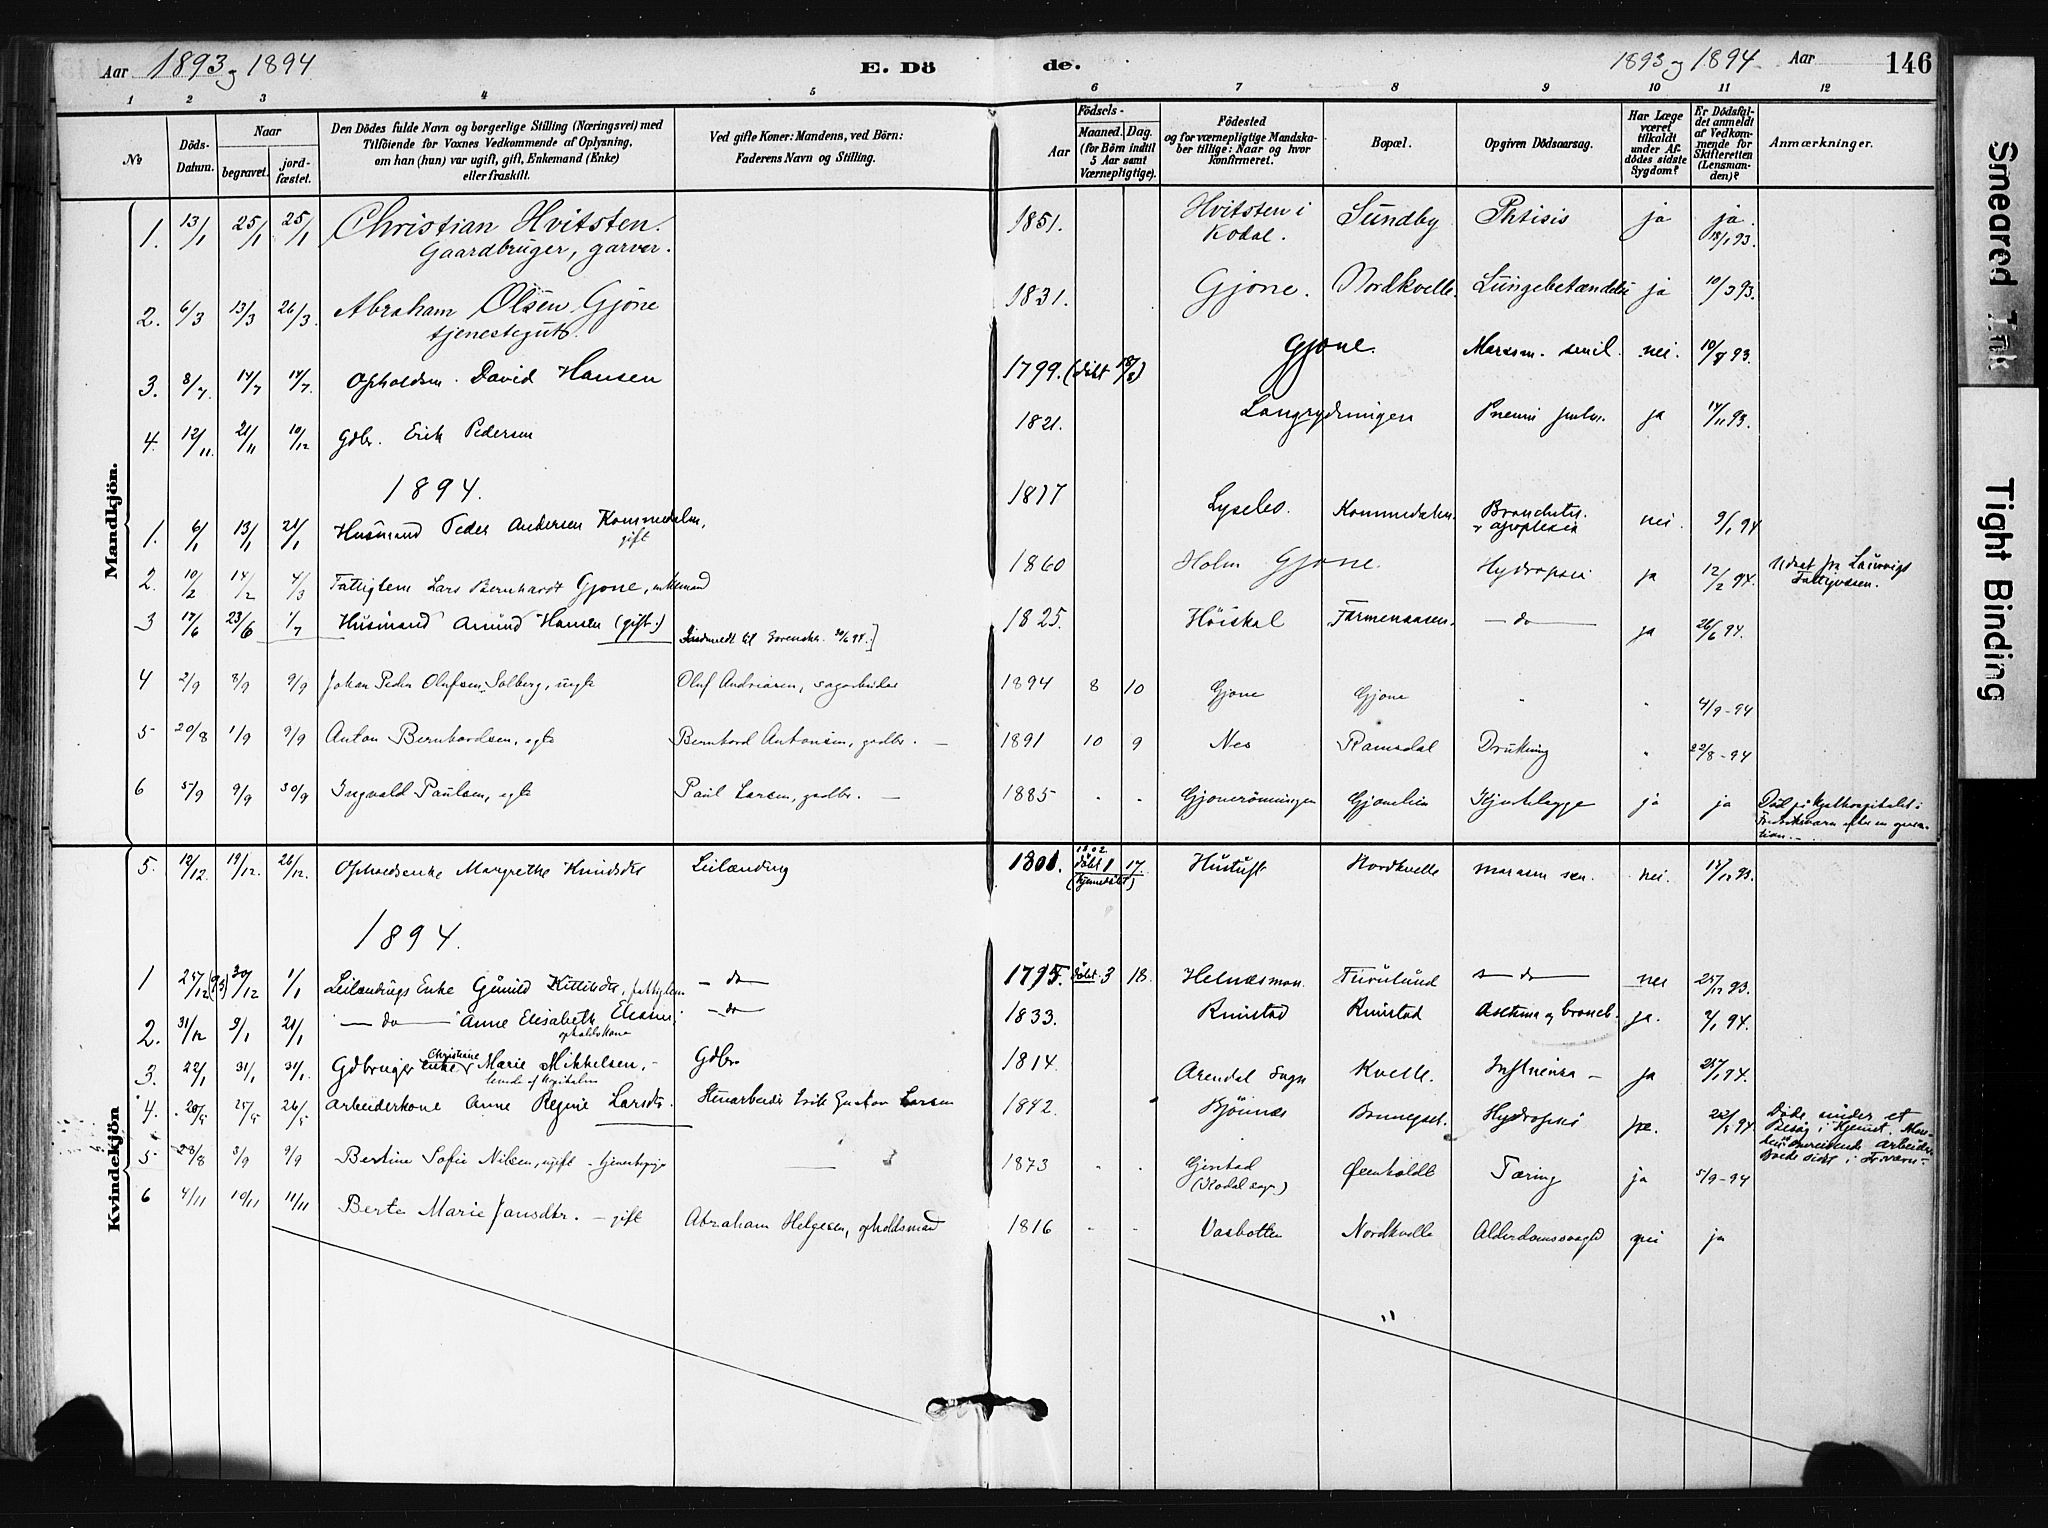 Aar 1893 og 1894 E. Dö de. 1893 og 1894 Aar 146
1 2 3 4 5 6 7 8 9 10 11 12
No
Döds-
Datum.
Naar
begravet.
jord-
fæstet.
Den Dödes fulde Navn og borgerlige Stilling (Næringsvei) med
Tilföiende for Voxnes Vedkommende af Oplysning,
om han (hun) var ugift, gift, Enkemand (Enke)
eller fraskilt.
Ved gifte Koner: Mandens, ved Börn:
Faderens Navn og Stilling.
Födsels-
Aar
Maaned. Dag.
(for Börn indtil
5 Aar samt
Værnepligtige).
Födested
og for værnepligtige Mandska-
ber tillige: Naar og hvor
Konfirmeret.
Bopæl.
Opgiven Dödsaarsag.
Har Læge
været
tilkaldt
under Af-
dödes sidste
Sygdom?
Er Dödsfal-
det anmeldt
af Vedkom-
mende for
Skifteretten
(Lensman-
den)?
Anmærkninger.
Mandkjön.
1. 13/1 25/1 25/1 Christian Hvitsten. 1851. Hvitsten i Sundby Phtisis ja ja
Gaardbruger, garver. Kodal. 18/1 93.
2. 6/3 13/3 26/3 Abraham Olsen Gjöne 1831. Gjone. Nordkvelle. Lungebetændelse ja 10/3 93.
tjenestegut.
3. 8/7 14/7 14/7 Opholdsm. David Hansen 1799. (döbt 18/8) Gjone. Marasm. senil. nei. 10/7 93.
4. 12/11 21/11 10/12 Gdbr. Erik Pedersen 1821. Langrydningen ja 14/11 93.
1894.
1. 6/1 13/1 21/1 Husmand Peder Andersen Kommedalen, 1817 Lysebo. Kommedalen. Bronchitis nei. 9/1 94
gift apoplexia
2. 10/2 14/2 4/3 Fattiglem Lars Bernhardt Gjone, enkemand 1860 Holm Gjone. Hydropsia ja 12/2 94. Udsat fra Laurvigs
Fattigvæsen.
3 17/6 23/6 1/7 Husmand Amund Hansen (gift.) 1825. Höiskal Farmenaasen. — do — ja 26/6 94.
4 2/9 8/9 9/9 Johan Peder Olufsen Solberg, uegte Oluf Andriasen, sagarbeider 1894 8 10 Gjone Gjone " " 4/9-94
5 20/8 1/9 9/9 Anton Bernhardsen, egte Bernhard Antonsen, gadbr. — 1891 10 9 Nes Ramsdal Drukning " 22/8-94
6 5/9 9/9 30/9 Ingvald Paulsen, egte Paul Larsen, gadbr. — 1885 " " Gjonerönningen Gjonelien ja ja Död på kysthospitalet i
Fredriksvern efter en opera-
tion.
Kvindekjön
5. 12/12. 19/12. 26/12. Opholdsenke Margrethe Knudsdtr Leilænding 1801. 1802 döbt 1 17. Hustuft Nordkvelle marasm sen. nei. 14/12 93.
(hjemmedöbt)
1894.
1 25/12 (93) 30/12 1/1 Leilændings Enke Gunild Kittilsdtr, fattiglem — do — 1795. döbt 3 18. Helnæsmoen Furulund — do — nei 25/12 93.
2. 31/12 9/1 21/1 — do — Anne Elisabeth — do 1833. Knutstad Knutstad Asthma og bronch. ja. 2/1 94.
opholdskone
3. 22/1 31/1 31/1. Gdbruger enke Christiane Marie Mikkelsen, Gdbr. 1814 Arendal Sogn Kvelle. Influensa — ja 25/1 94.
4. 20/5 25/5 26/5 Arbeiderkone Anne Regine Larsdtr. Stenarbeider Erik Gustav Larsen 1842. Bjönnes Hydropsi ja. 22/5 94 Döde under et
Besög i Hjemst.
arbeider
5 28/8 3/9 9/9 Bertine Sofie Nilsen, ugift - tjenestepige — 1873 " " Gjerstad Øenholdt Tæring ja 5/9-94
(Kodal sogn)
6 4/11 10/11 11/11 Berte Marie Jansdtr. — gift Abraham Helgesen, opholdsmand 1816 " " Vasbotten Nordkvelle Alderdomssvaghed nei ja
Smeared Ink
Tight Binding